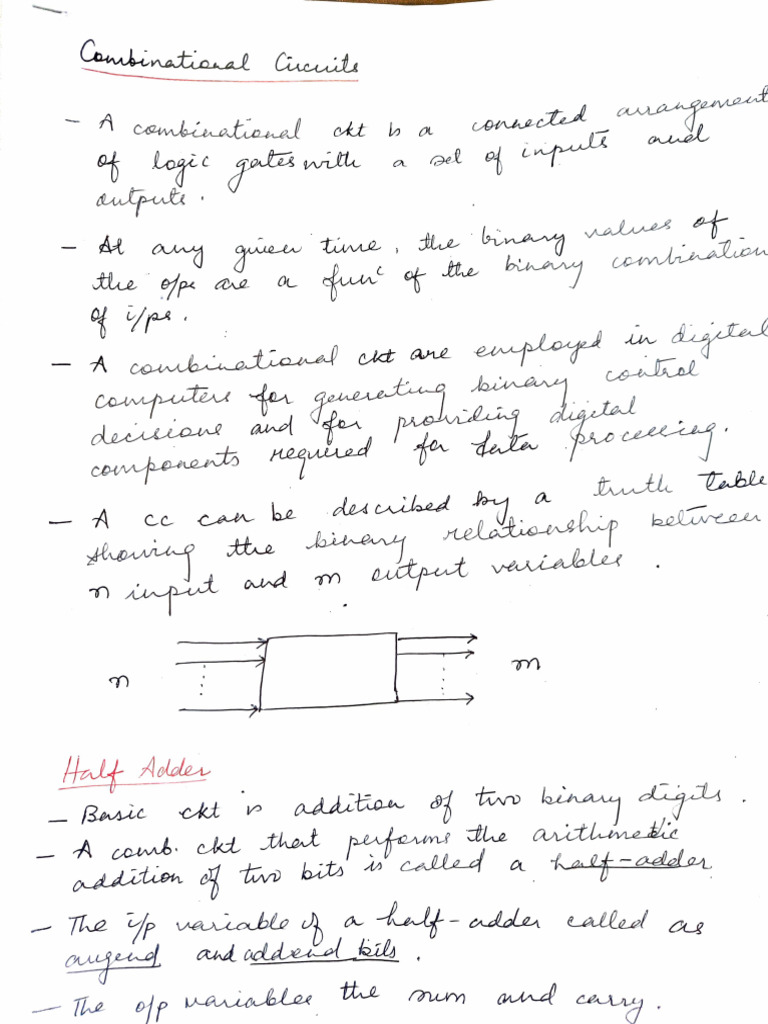 Combinational Circuits
- A combinational ckt is a connected arrangement
of logic gates with a set of inputs and
outputs.
- At any given time, the binary values of
the o/ps are a funᶜ of the binary combination
of i/ps.
- A combinational ckt are employed in digital
computers for generating binary control
decisions and for providing digital
components required for data processing.
- A cc can be described by a truth table
showing the binary relationship between
n input and m output variables.
n m
Half Adder
- Basic ckt is addition of two binary digits.
- A comb. ckt that performs the arithmetic
addition of two bits is called a half-adder
- The i/p variable of a half-adder called as
augend and addend bits.
- The o/p variables the sum and carry.